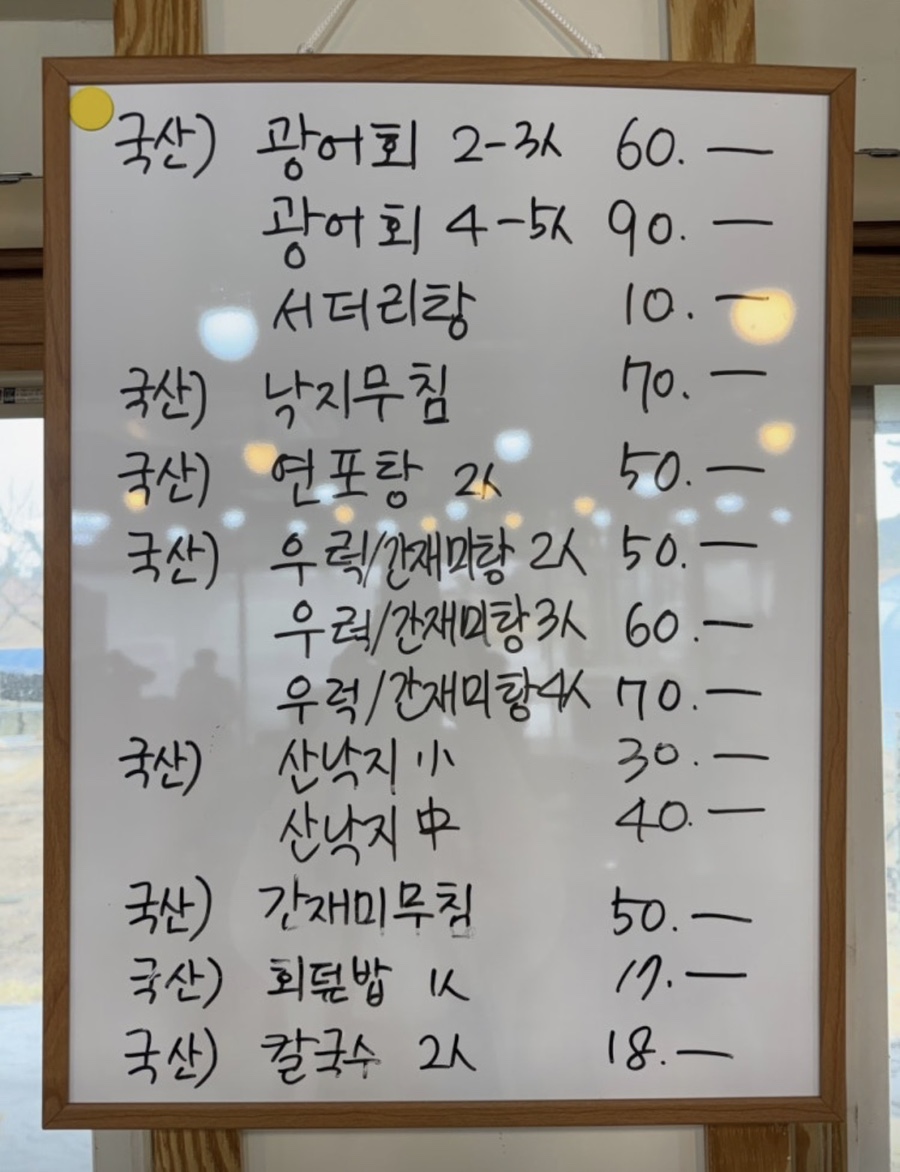 국산) 광어회 2-3人 60.—
광어회 4-5人 90.—
서더리탕 10.—
국산) 낙지무침 70.—
국산) 연포탕 2人 50.—
국산) 우럭/간재미탕 2人 50.—
우럭/간재미탕 3人 60.—
우럭/간재미탕 4人 70.—
국산) 산낙지 小 30.—
산낙지 中 40.—
국산) 간재미무침 50.—
국산) 회덮밥 1人 17.—
국산) 칼국수 2人 18.—